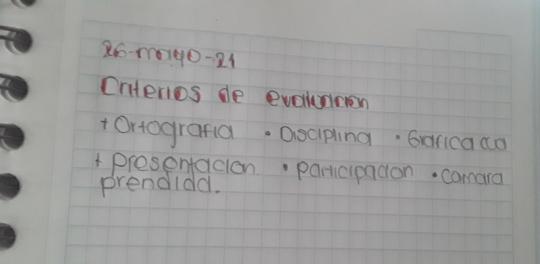 26-mayo-21
Criterios de evaluación
+ Ortografia • Disciplina • Graficada
+ presentacion • participacion • camara
prendida.